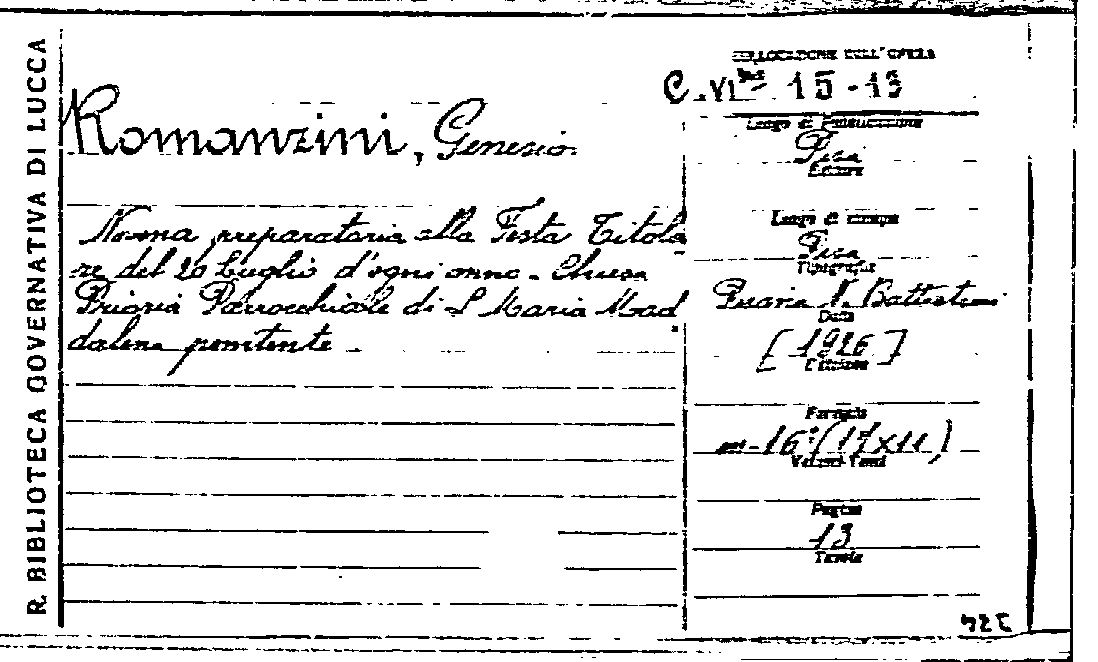 R. BIBLIOTECA GOVERNATIVA DI LUCCA
COLLOCAZIONE DELL'OPERA
C.VI bis 15-13
Romanzini, Genesio.
Luogo di Pubblicazione
Pisa
Editore
Novena preparatoria alla Festa Titola
re del 20 Luglio d'ogni anno - Chiesa
Prioria Parrocchiale di S Maria Mad
dalena penitente
Luogo di stampa
Pisa
Tipografia
N. Battistini
Data
[1926]
Edizione
Formato
in-16°(17x11)
Volumi-Tomi
Pagine
13
Tavole